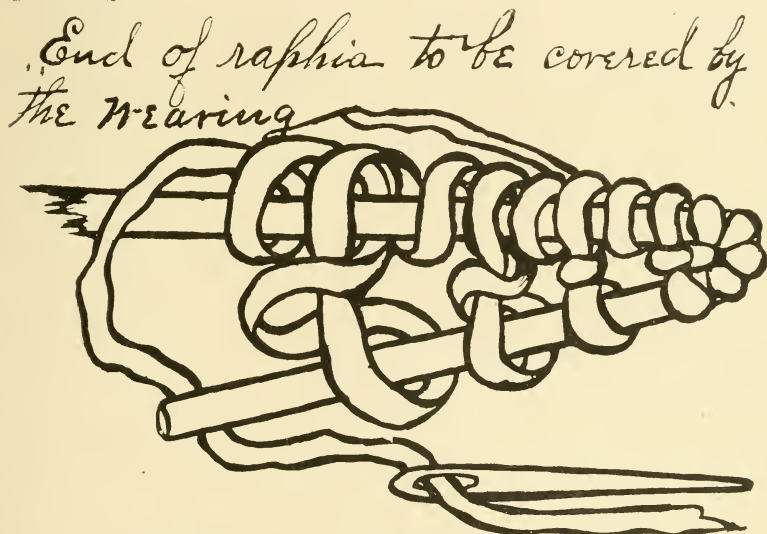 End of raphia to be covered by
the weaving